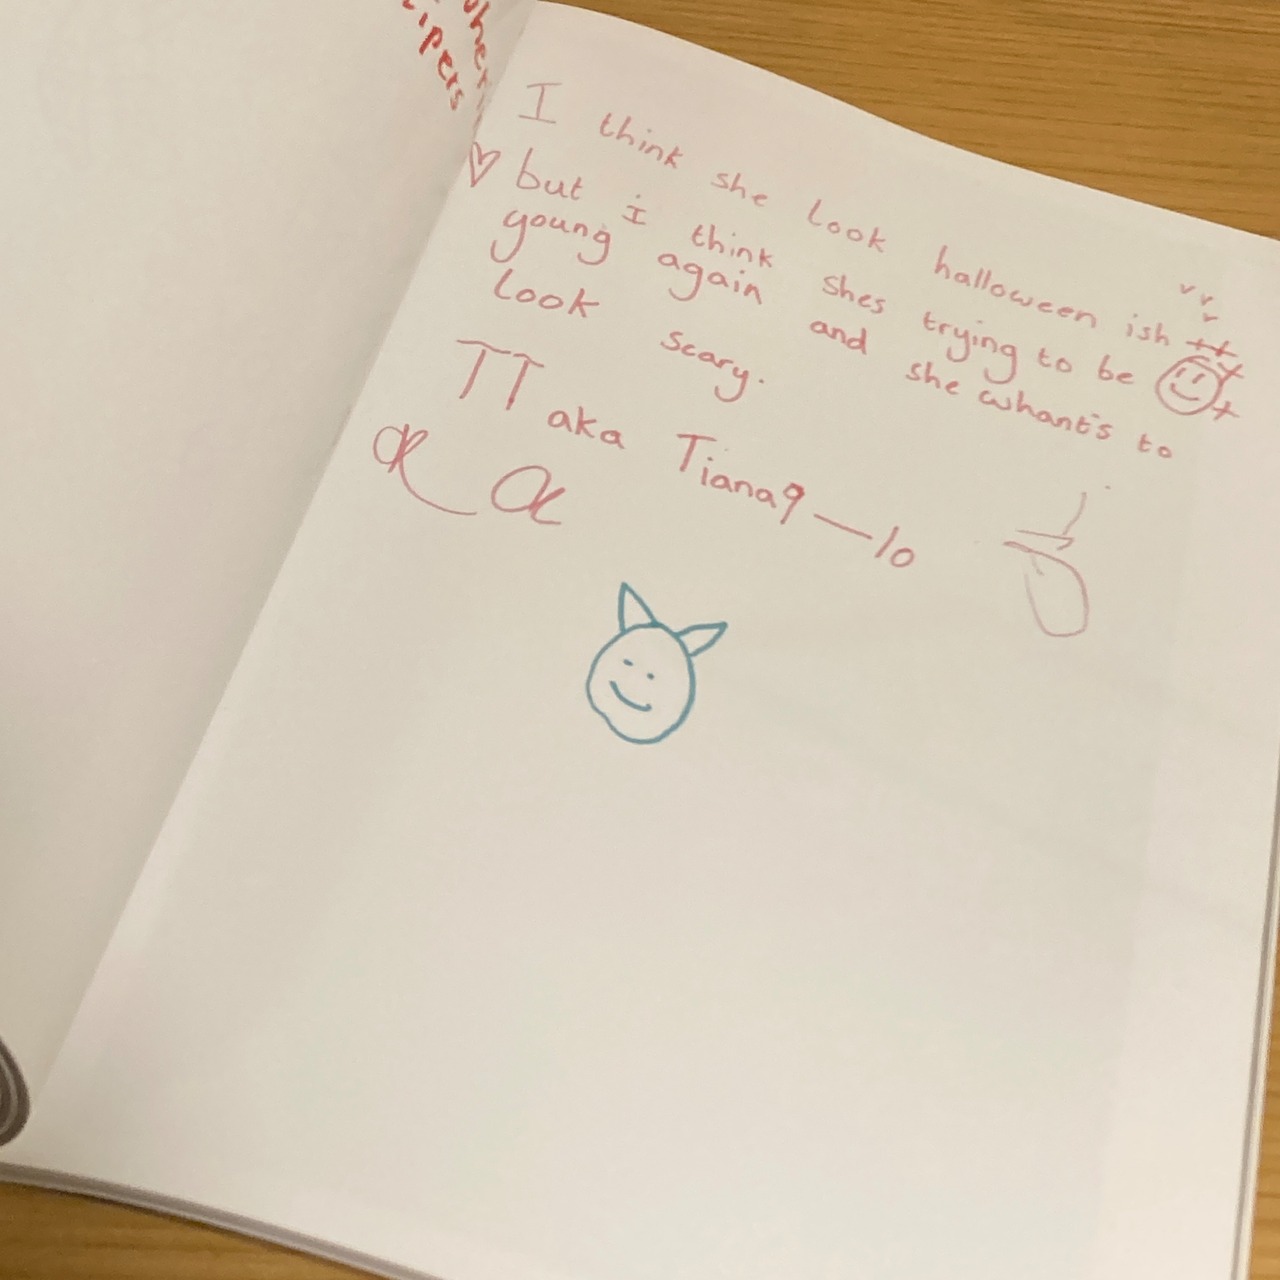 zipers
I think she look halloween ish
but i think shes trying to be
young again and she whant's to
look scary.
TT aka Tiana 9—10